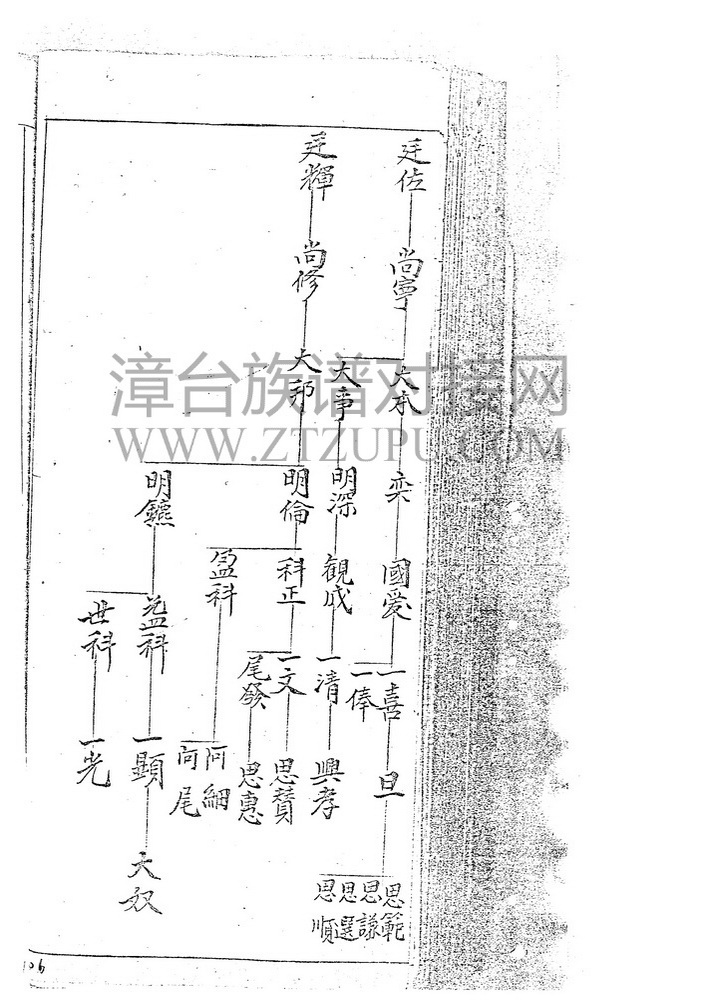 廷佐
尚寧
大承
大事
奕
明深
國爱
觀成
一喜
一俸
一清
旦
興孝
思範
思謙
思選
思順
廷輝
尚修
大邦
明倫
明鐿
科正
盈科
益科
世科
一文
尾發
思賛
思惠
阿細
阿尾
一顯
一光
大奴
漳台族谱对接网
WWW.ZTZUPU.COM
106